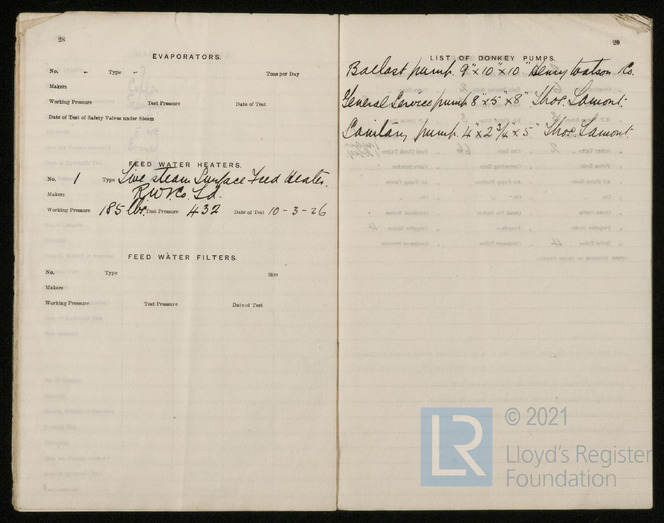 28
EVAPORATORS.
No. - Type - Tons per Day
Makers
Working Pressure Test Pressure Date of Test
Date of Test of Safety Valves under Steam
FEED WATER HEATERS.
No. 1 Type Live steam Surface Feed Heater.
Makers R.W. & Co. Ld.
Working Pressure 185 lbs. Test Pressure 432 Date of Test 10-3-26
FEED WATER FILTERS.
No. Type Size
Makers
Working Pressure Test Pressure Date of Test
29
LIST OF DONKEY PUMPS.
Ballast pump. 9" x 10" x 10" Henry Watson Co.
General Services pump 8" x 5" x 8" Thos. Lamont.
Sanitary pump. 4" x 2 3/4 x 5" Thos. Lamont
LR
© 2021
Lloyd's Register
Foundation